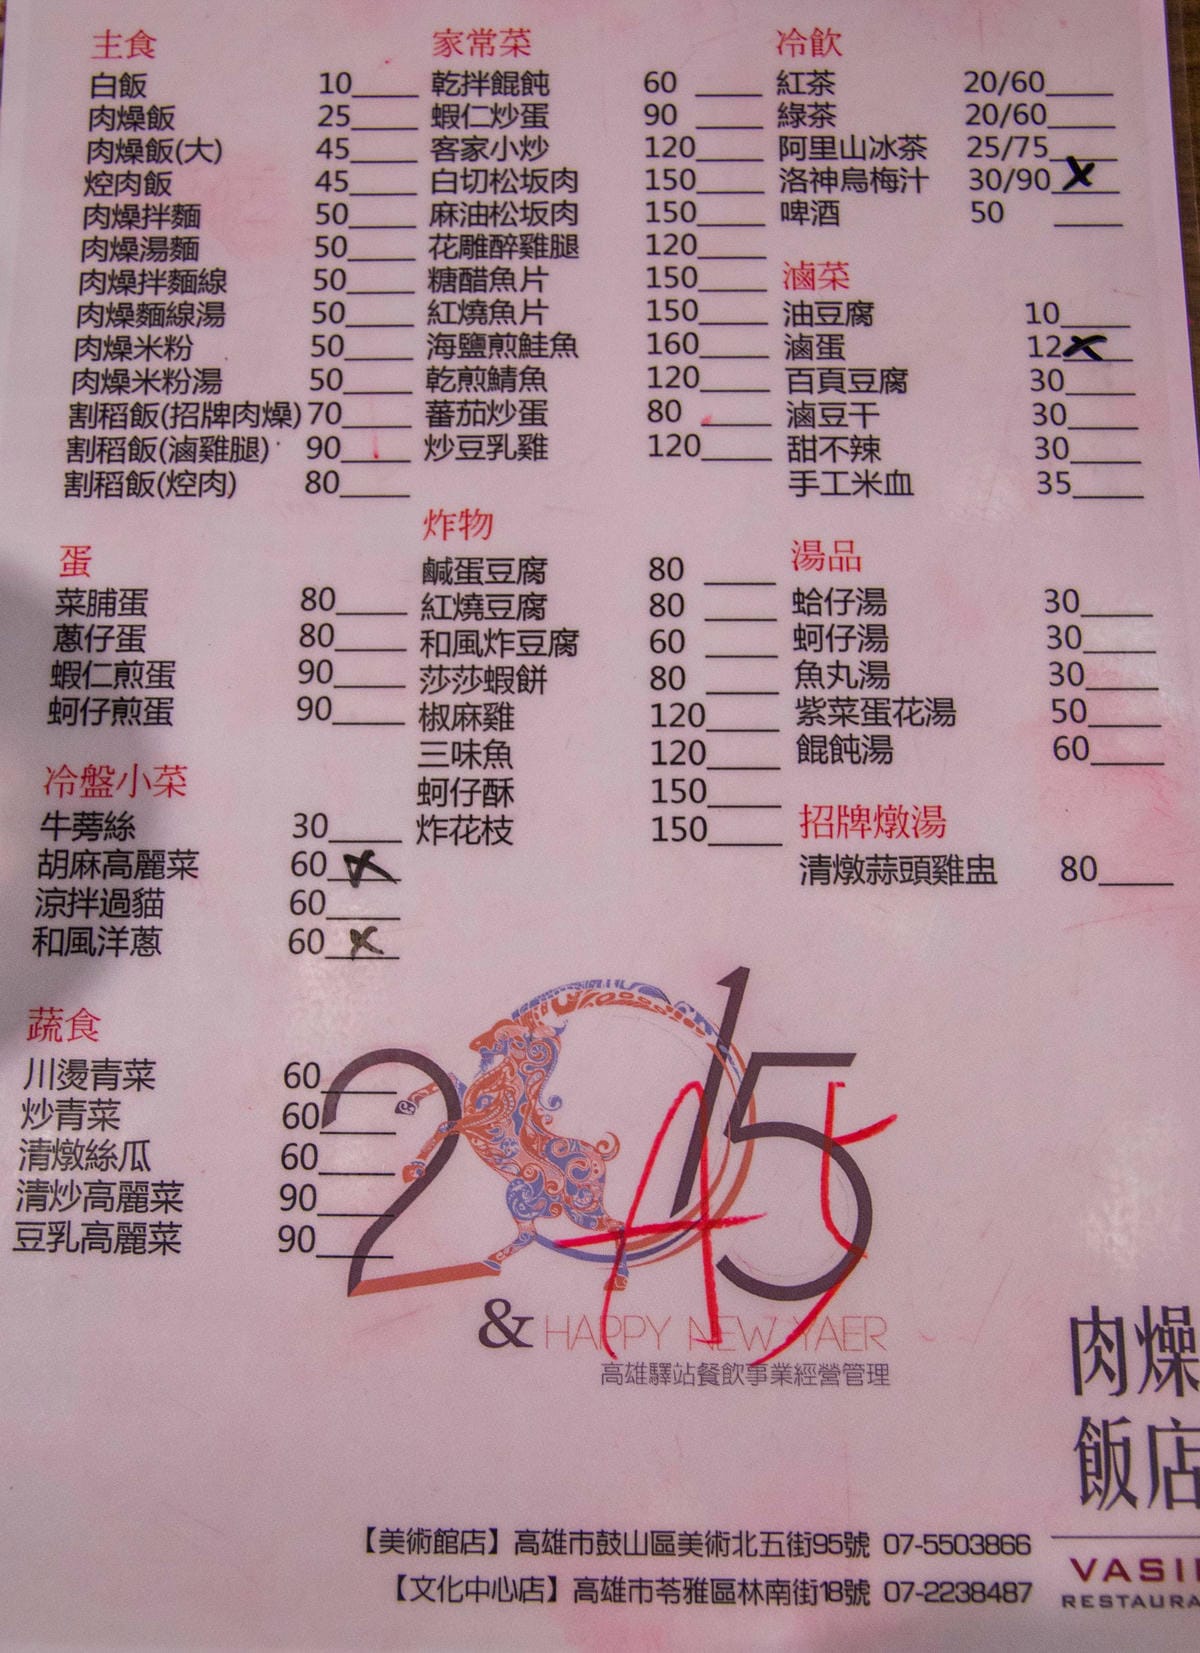 主食
白飯 10____
肉燥飯 25____
肉燥飯(大) 45____
焢肉飯 45____
肉燥拌麵 50____
肉燥湯麵 50____
肉燥拌麵線 50____
肉燥麵線湯 50____
肉燥米粉 50____
肉燥米粉湯 50____
割稻飯(招牌肉燥) 70____
割稻飯(滷雞腿) 90____
割稻飯(焢肉) 80____
蛋
菜脯蛋 80____
蔥仔蛋 80____
蝦仁煎蛋 90____
蚵仔煎蛋 90____
冷盤小菜
牛蒡絲 30____
胡麻高麗菜 60____
涼拌過貓 60____
和風洋蔥 60____
蔬食
川燙青菜 60____
炒青菜 60____
清燉絲瓜 60____
清炒高麗菜 90____
豆乳高麗菜 90____
家常菜
乾拌餛飩 60 ____
蝦仁炒蛋 90 ____
客家小炒 120____
白切松坂肉 150____
麻油松坂肉 150____
花雕醉雞腿 120____
糖醋魚片 150____
紅燒魚片 150____
海鹽煎鮭魚 160____
乾煎鯖魚 120____
蕃茄炒蛋 80 ____
炒豆乳雞 120____
炸物
鹹蛋豆腐 80 ____
紅燒豆腐 80 ____
和風炸豆腐 60 ____
莎莎蝦餅 80 ____
椒麻雞 120____
三味魚 120____
蚵仔酥 150____
炸花枝 150____
冷飲
紅茶 20/60____
綠茶 20/60____
阿里山冰茶 25/75____
洛神烏梅汁 30/90____
啤酒 50 ____
滷菜
油豆腐 10____
滷蛋 12____
百頁豆腐 30____
滷豆干 30____
甜不辣 30____
手工米血 35____
湯品
蛤仔湯 30____
蚵仔湯 30____
魚丸湯 30____
紫菜蛋花湯 50____
餛飩湯 60____
招牌燉湯
清燉蒜頭雞盅 80____
2015
A5
& HAPPY NEW YAER
高雄驛站餐飲事業經營管理
肉燥
飯店
【美術館店】高雄市鼓山區美術北五街95號 07-5503866
【文化中心店】高雄市苓雅區林南街18號 07-2238487
VASI
RESTAURA